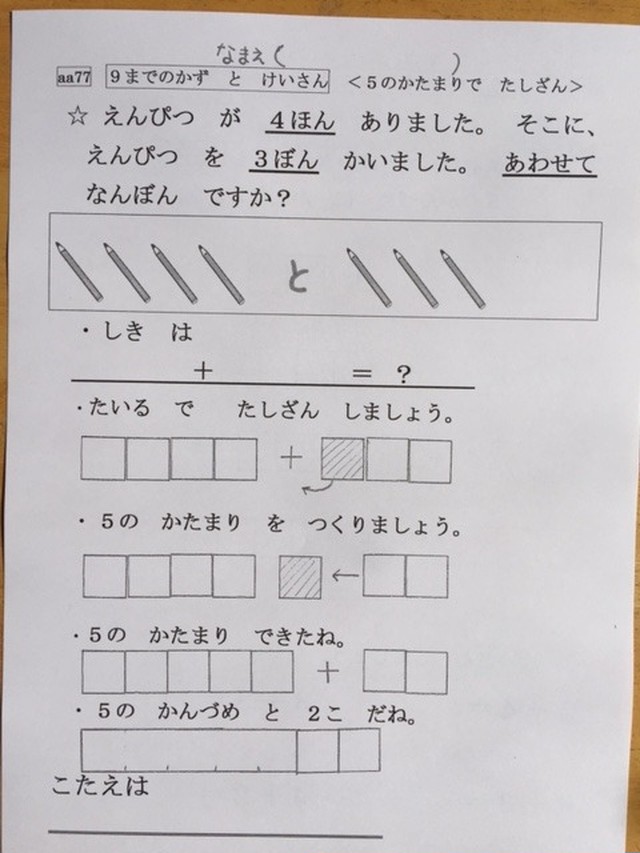 なまえ(　　　　　　　)
aa77　9までのかず　と　けいさん　＜5のかたまりで　たしざん＞
☆ えんぴつ　が　4ほん　ありました。　そこに、
えんぴつ　を　3ぼん　かいました。　あわせて
なんぼん　ですか？
と
・しき　は
＋　　　　　　＝　？
・たいる　で　　たしざん　しましょう。
＋
・5の　かたまり　を　つくりましょう。
←
・5の　かたまり　できたね。
＋
・5の　かんづめ　と　2こ　だね。
こたえは